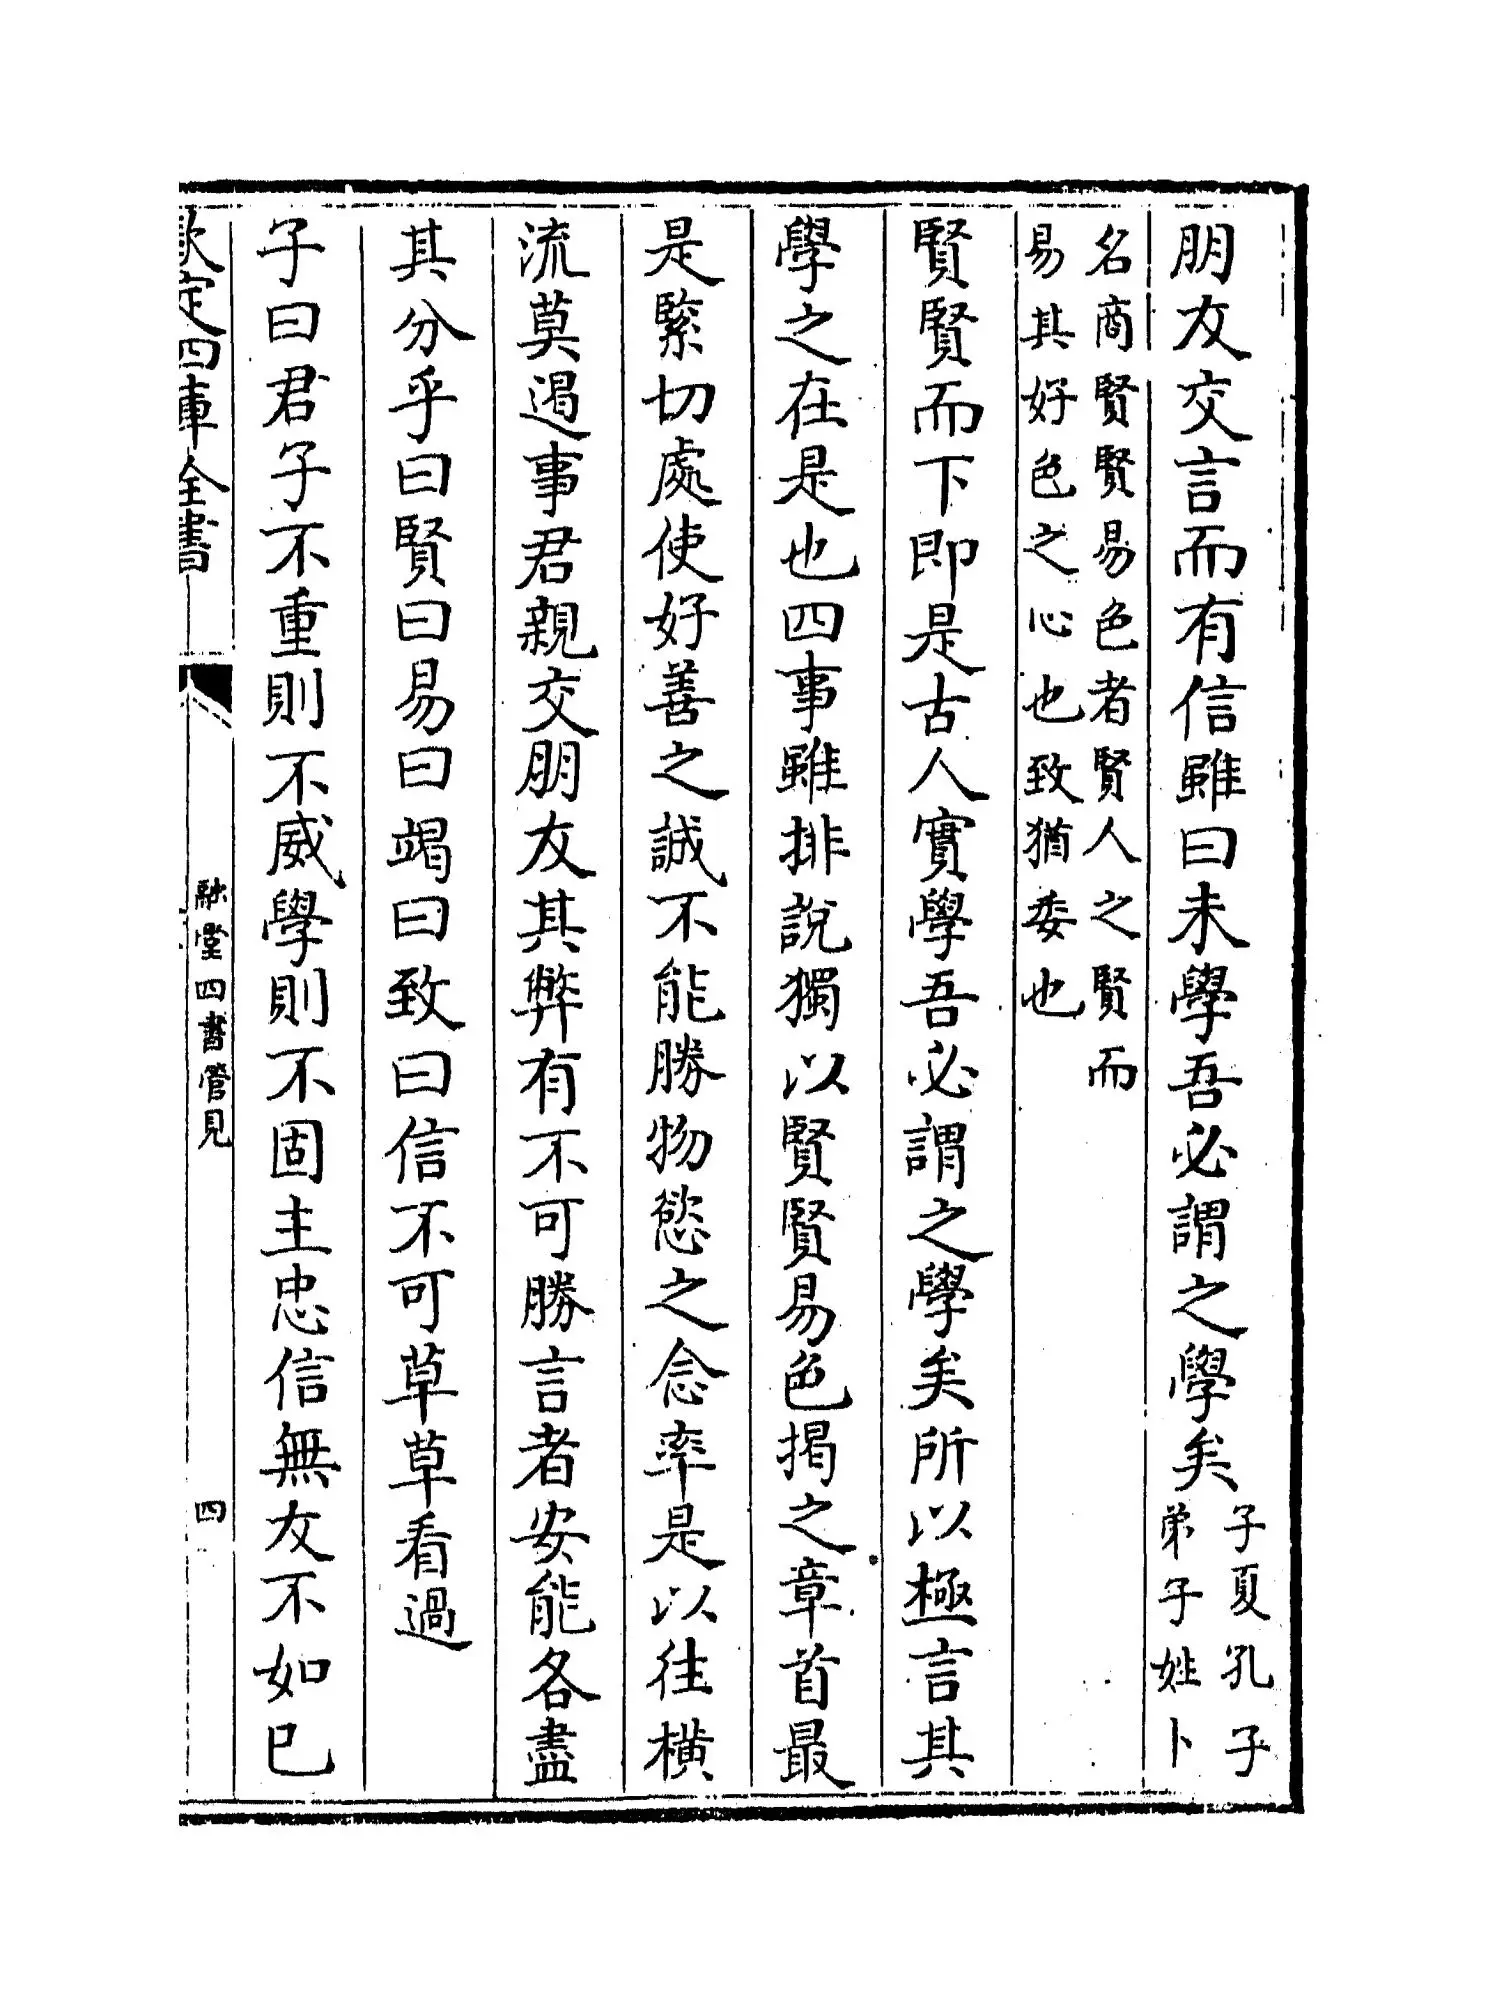 朋友交言而有信雖曰未學吾必謂之學矣
子夏孔子
弟子姓卜
名商賢賢易色者賢人之賢而
易其好色之心也致猶委也
賢賢而下即是古人實學吾必謂之學矣所以極言其
學之在是也四事雖排說獨以賢賢易色揭之章首最
是緊切處使好善之誠不能勝物慾之念率是以往横
流莫遏事君親交朋友其弊有不可勝言者安能各盡
其分乎曰賢曰易曰竭曰致曰信不可草草看過
子曰君子不重則不威學則不固主忠信無友不如已
欽定四庫全書
融堂四書管見
四